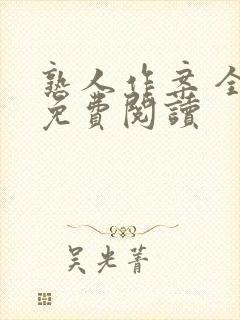 熟人作案全
免費閱讀
吴光菁